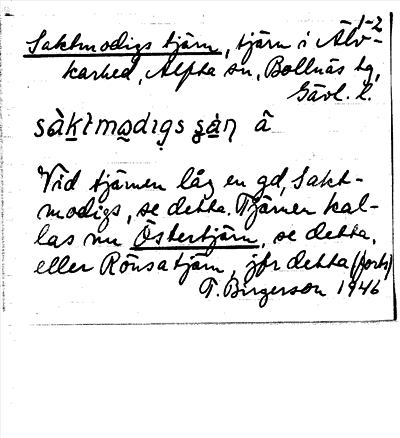 1-2
Saktmodigs tjärn, tjärn i Älv-
karhed, Alfta sn, Bollnäs tg,
Gävl. l.
sàktmodigs ʂàɳ â
Vid tjärnen låg en gd, Sakt-
modigs, se detta. Tjärnen kal-
las nu Östertjärn, se detta,
eller Rönsatjärn, jfr detta (forts)
T. Birgerson 1946